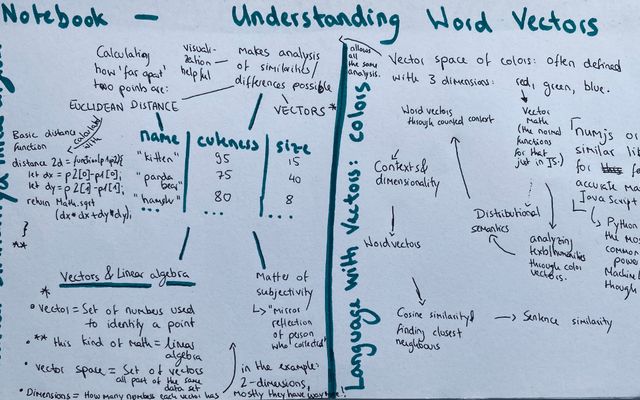 Notebook - Understanding Word Vectors
Calculating
how 'far apart'
two points are:
visuali-
zation
helpful
Makes analysis
of similarities/
differences possible
EUCLIDEAN DISTANCE
VECTORS *
Basic distance
function
calculated with
distance 2d = function(p1,p2){
let dx = p2[0]-p1[0];
let dy = p2[1]-p1[1];
return Math.sqrt
(dx*dx+dy*dy);
}
**
name cuteness size
"kitten" 95 15
"panda bear" 75 40
"hamster" 80 8
... ... ...
Vectors & Linear algebra
*
• Vector = Set of numbers used
to identify a point
• ** this kind of math = linear
algebra
• vector space = Set of vectors
all part of the same
data set
• Dimensions = How many numbers each vector has
Matter of
subjectivity
↳ "Mirror
reflection
of person
who collected"
in the example:
2-dimensions,
mostly they have way more!
Language with vectors: colors
allows
all
the same
analysis.
Vector space of colors: often defined
with 3 dimensions: red, green, blue.
Word vectors
through counted context
Contexts &
dimensionality
Word vectors
Cosine similarity &
finding closest
neighbours
→ Sentence similarity
Distributional
semantics
Vector
Math
(the normal
functions
for that
just in JS.)
analyzing
through color
vectors.
numjs or
similar
for
accurate
Java Script
↳ Python
the most
common
power
Machine
though